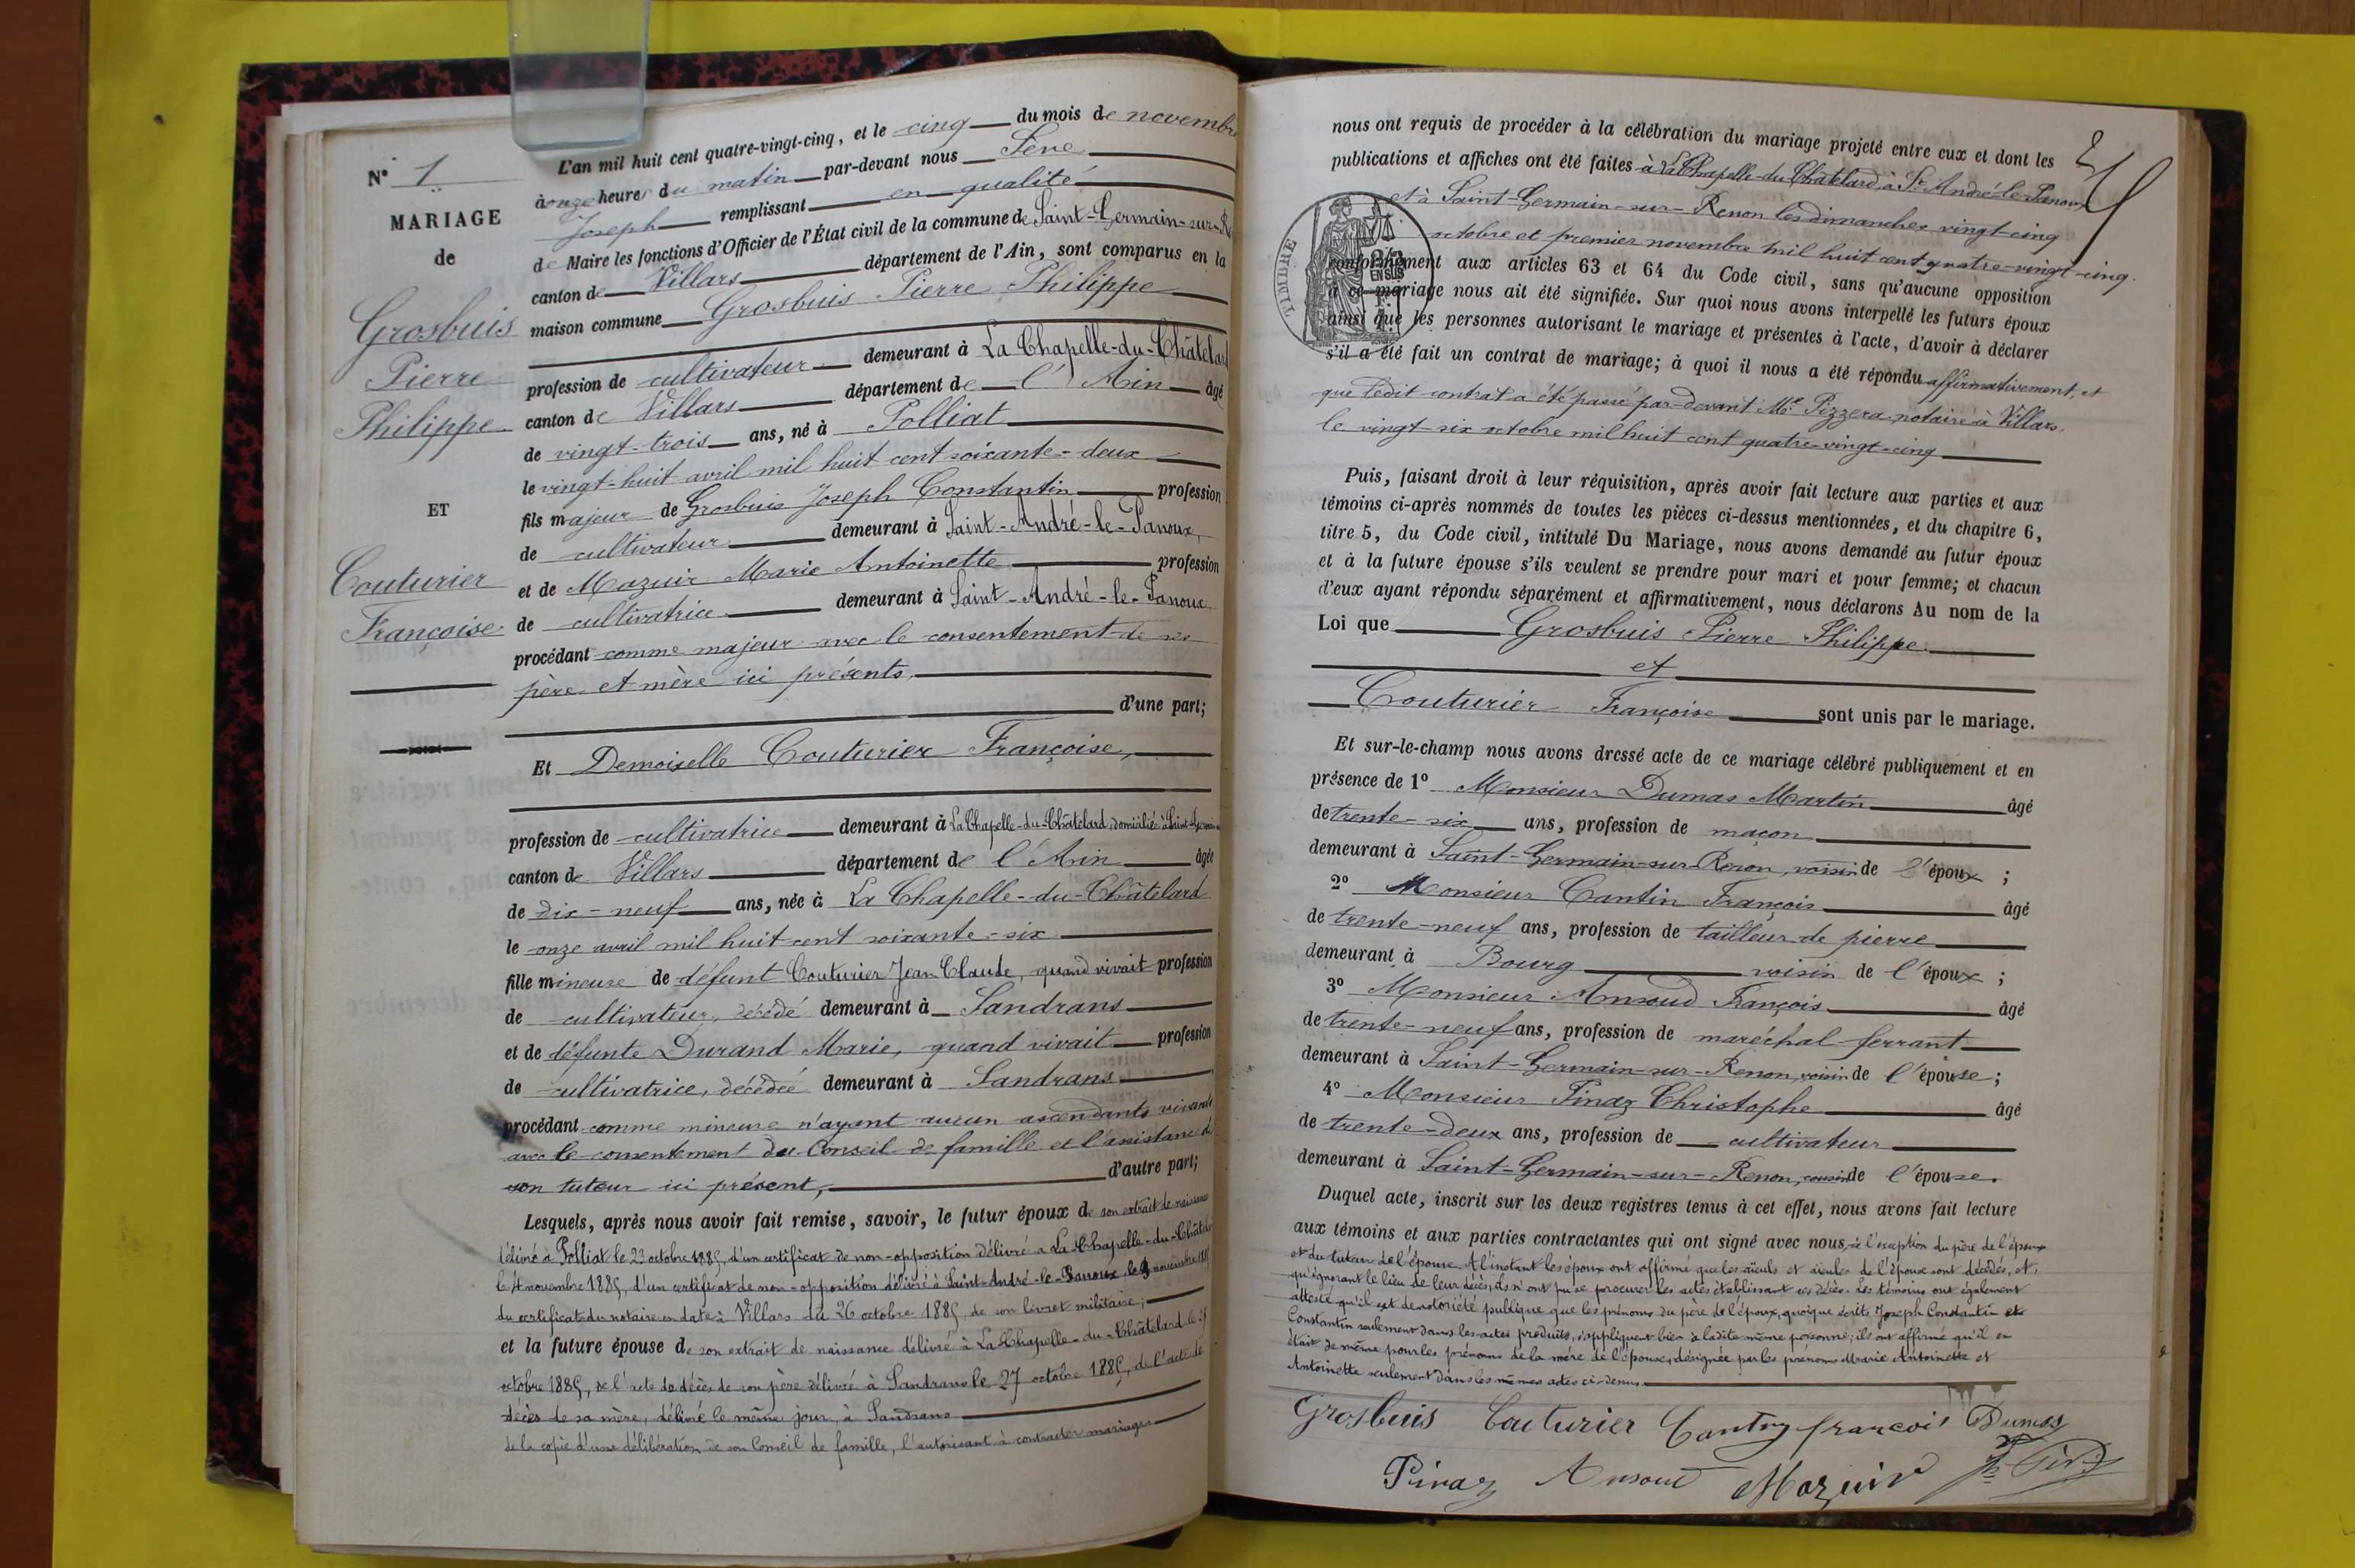 N° 1
MARIAGE
de
Grosbuis
Pierre
Philippe
ET
Couturier
Françoise
L'an mil huit cent quatre-vingt-cinq, et le cinq du mois de novembre
à onze heures du matin par-devant nous Sève
Joseph remplissant en qualité
de Maire les fonctions d'Officier de l'État civil de la commune de Saint-Germain-sur-R
canton de Villars département de l'Ain, sont comparus en la
maison commune Grosbuis Pierre Philippe
profession de cultivateur demeurant à La Chapelle-du-Châtelard
canton de Villars département de l'Ain âgé
de vingt-trois ans, né à Polliat
le vingt-huit avril mil huit cent soixante-deux
fils majeur de Grosbuis Joseph Constantin profession
de cultivateur demeurant à Saint-André-le-Panoux,
et de Mazuir Marie Antoinette profession
de cultivatrice demeurant à Saint-André-le-Panoux
procédant comme majeur avec le consentement de ses
père et mère ici présents,
d'une part;
Et Demoiselle Couturier Françoise,
profession de cultivatrice demeurant à La Chapelle-du-Châtelard, domiciliée à Saint-Germain
canton de Villars département de l'Ain âgée
de dix-neuf ans, née à La Chapelle-du-Châtelard
le onze avril mil huit cent soixante-six
fille mineure de défunt Couturier Jean Claude, quand vivait profession
de cultivateur, décédé demeurant à Sandrans
et de défunte Durand Marie, quand vivait profession
de cultivatrice, décédée demeurant à Sandrans
procédant comme mineure n'ayant aucun ascendants vivants
avec le consentement du Conseil de famille et l'assistance de
son tuteur ici présent,
d'autre part;
Lesquels, après nous avoir fait remise, savoir, le futur époux de son extrait de naissance
délivré à Polliat le 23 octobre 1885, d'un certificat de non-opposition délivré à La Chapelle-du-Châtelard
le 4 novembre 1885, d'un certificat de non-opposition délivré à Saint-André-le-Panoux le novembre 1885
du certificat du notaire en date à Villars du 26 octobre 1885, de son livret militaire;
et la future épouse de son extrait de naissance délivré à La Chapelle-du-Châtelard le 27
octobre 1885, de l'acte de décès de son père délivré à Sandrans le 27 octobre 1885, de l'acte de
décès de sa mère, délivré le même jour, à Sandrans
de la copie d'une délibération de son Conseil de famille, l'autorisant à contracter mariage
nous ont requis de procéder à la célébration du mariage projeté entre eux et dont les
publications et affiches ont été faites à La Chapelle-du-Châtelard, à St André-le-Panoux
et à Saint-Germain-sur-Renon les dimanches vingt-cinq
octobre et premier novembre mil huit cent quatre-vingt-cinq.
TIMBRE
EN SUS
conformément aux articles 63 et 64 du Code civil, sans qu'aucune opposition
à ce mariage nous ait été signifiée. Sur quoi nous avons interpellé les futurs époux
ainsi que les personnes autorisant le mariage et présentes à l'acte, d'avoir à déclarer
s'il a été fait un contrat de mariage; à quoi il nous a été répondu affirmativement, et
que ledit contrat a été passé par-devant Me Pizzera notaire à Villars,
le vingt-six octobre mil huit cent quatre-vingt-cinq
Puis, faisant droit à leur réquisition, après avoir fait lecture aux parties et aux
témoins ci-après nommés de toutes les pièces ci-dessus mentionnées, et du chapitre 6,
titre 5, du Code civil, intitulé Du Mariage, nous avons demandé au futur époux
et à la future épouse s'ils veulent se prendre pour mari et pour femme; et chacun
d'eux ayant répondu séparément et affirmativement, nous déclarons Au nom de la
Loi que Grosbuis Pierre Philippe
et
Couturier Françoise sont unis par le mariage.
Et sur-le-champ nous avons dressé acte de ce mariage célébré publiquement et en
présence de 1° Monsieur Dumas Martin âgé
de trente-six ans, profession de maçon
demeurant à Saint-Germain-sur-Renon, voisin de l'époux ;
2° Monsieur Cantin François âgé
de trente-neuf ans, profession de tailleur de pierre
demeurant à Bourg voisin de l'époux ;
3° Monsieur Ansoud François âgé
de trente-neuf ans, profession de maréchal ferrant
demeurant à Saint-Germain-sur-Renon, voisin de l'épouse ;
4° Monsieur Pinaz Christophe âgé
de trente-deux ans, profession de cultivateur
demeurant à Saint-Germain-sur-Renon, cousin de l'épouse.
Duquel acte, inscrit sur les deux registres tenus à cet effet, nous avons fait lecture
aux témoins et aux parties contractantes qui ont signé avec nous, à l'exception du père de l'époux
et du tuteur de l'épouse. A l'instant les époux ont affirmé que les aïeuls et aïeules de l'épouse sont décédés, et,
qu'ignorant le lieu de leur décès, ils n'ont pu se procurer les actes établissant ces décès. Les témoins ont également
attesté qu'il est de notoriété publique que les prénoms du père de l'époux, quoique écrits Joseph Constantin et
Constantin seulement dans les actes produits, s'appliquent bien à ladite même personne; ils ont affirmé qu'il en
était de même pour les prénoms de la mère de l'épouse, désignée par les prénoms Marie Antoinette et
Antoinette seulement dans les mêmes actes ci-dessus.
Grosbuis Couturier Cantin françois Dumas
Pinaz Ansoud Mazuir